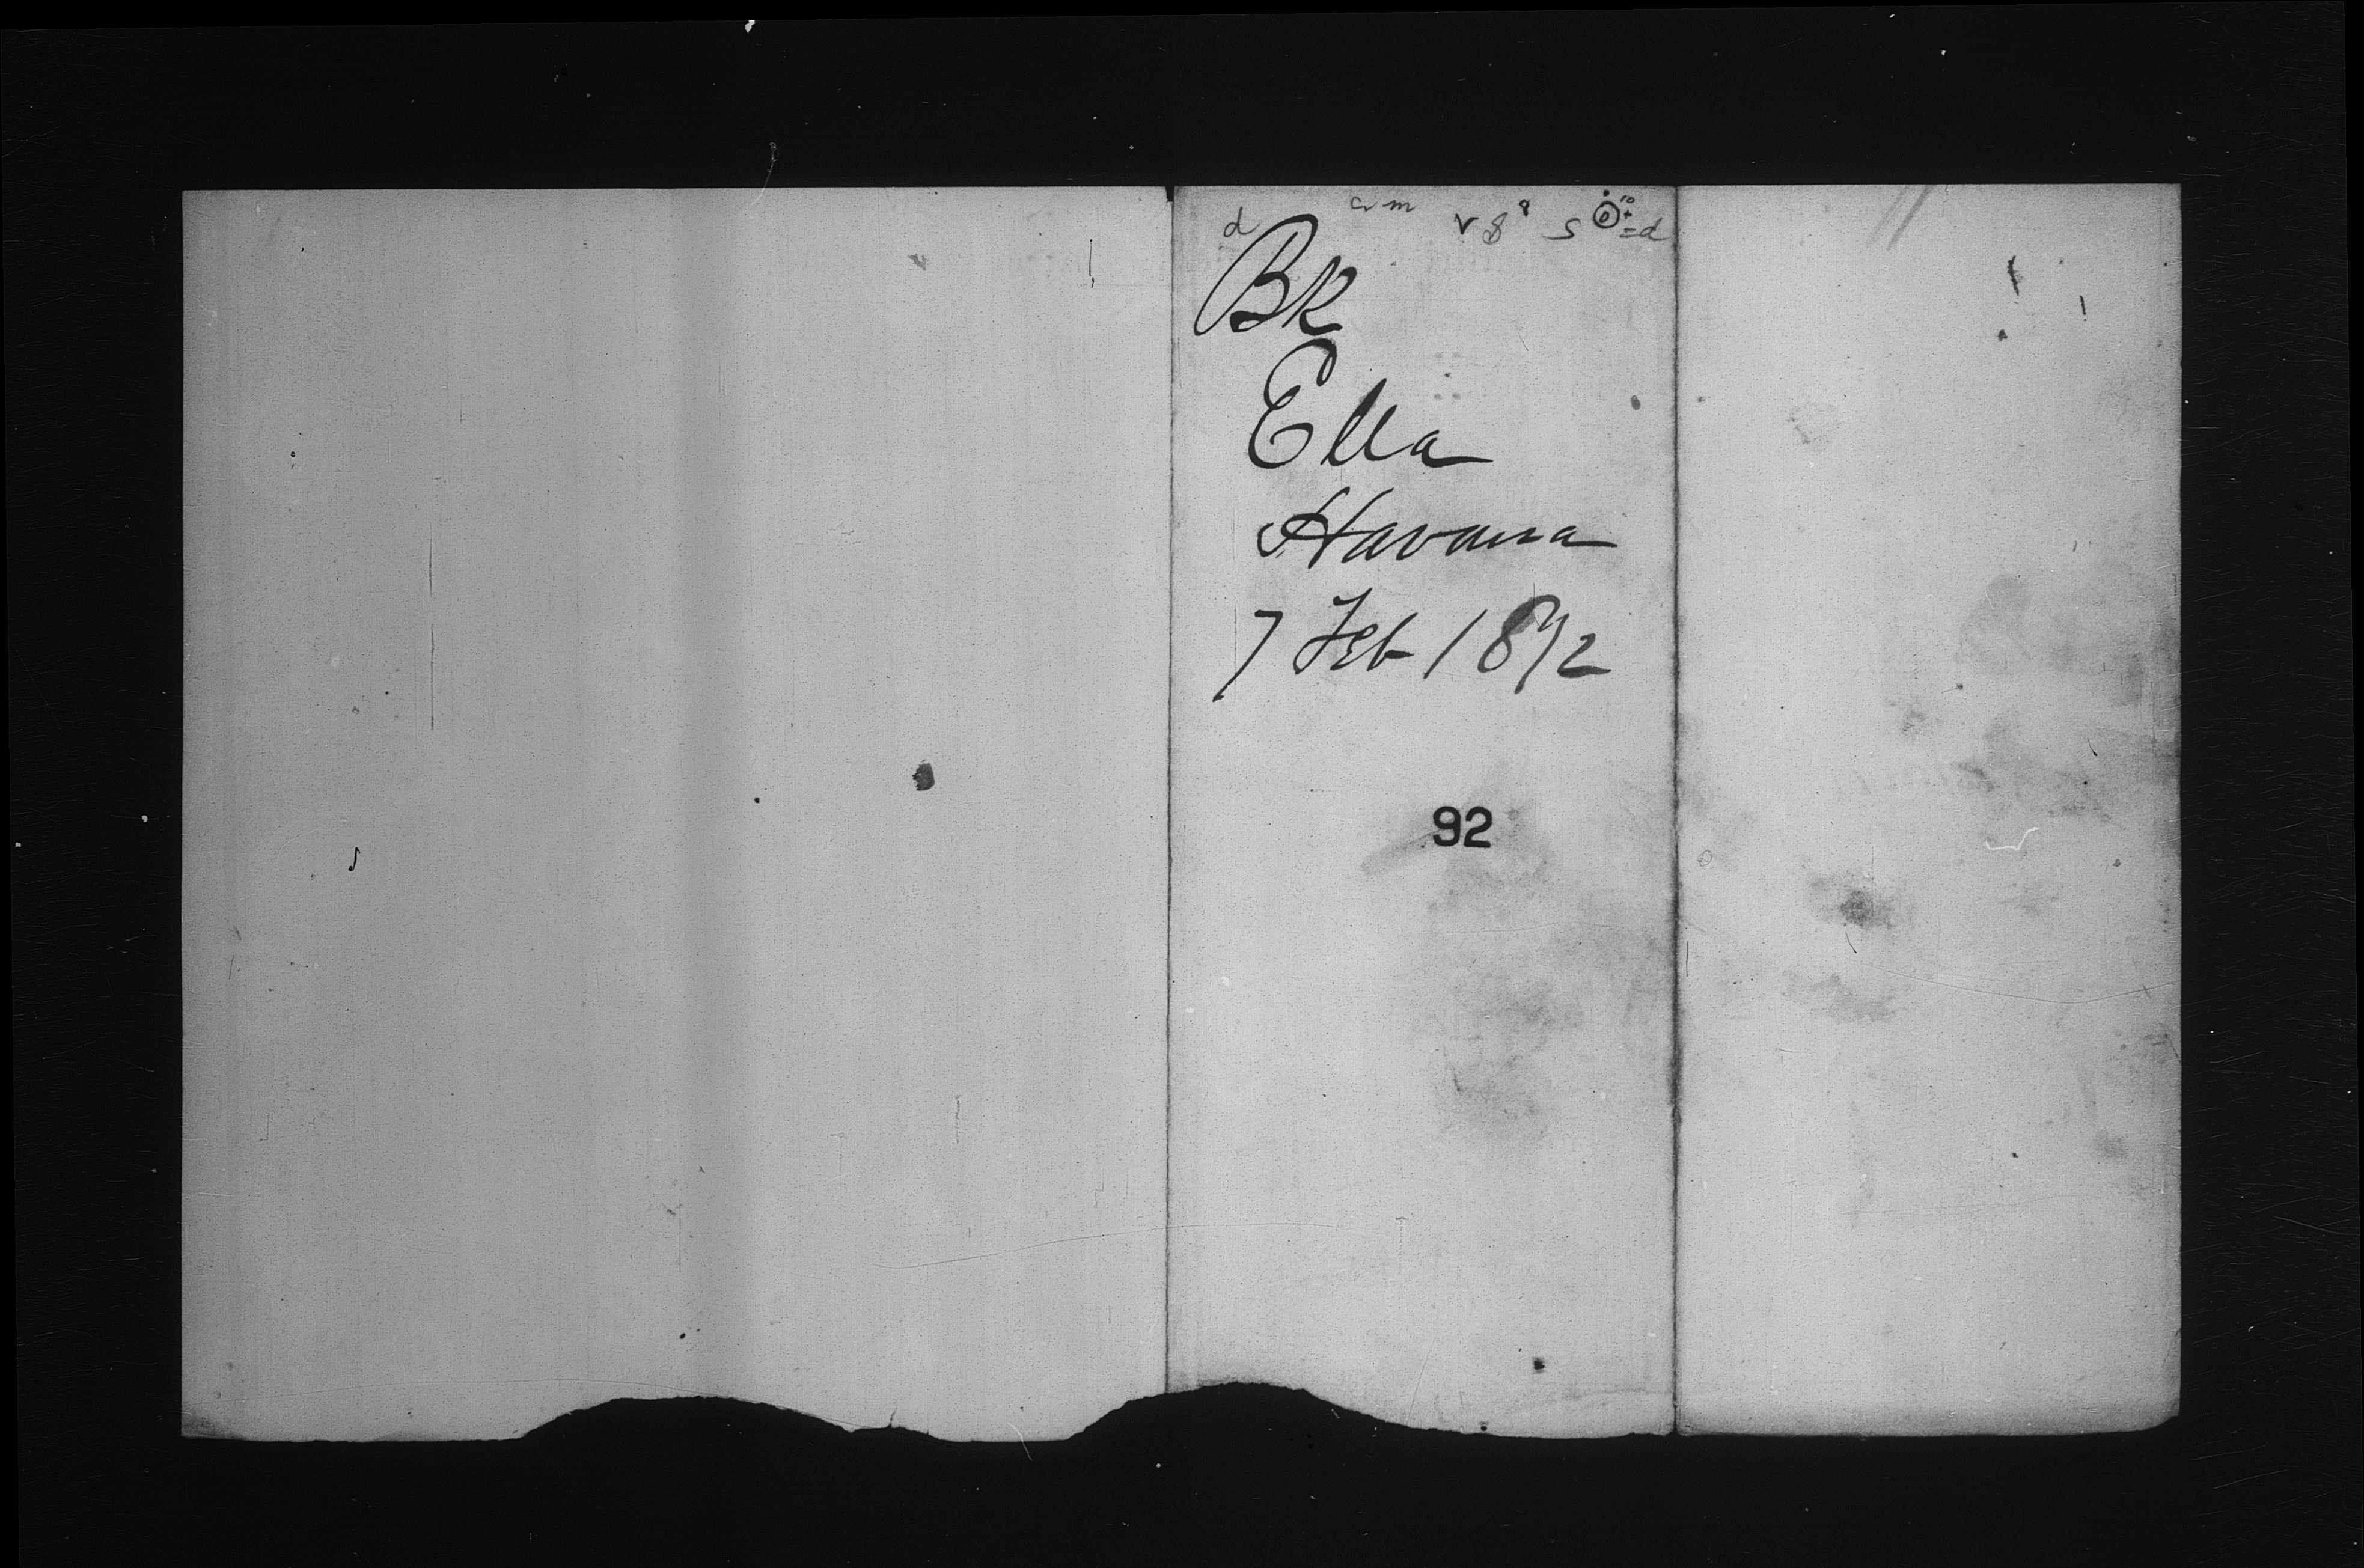 d am v 8 8 S =d
Bk
Ella
Havana
7 Feb 1872
92